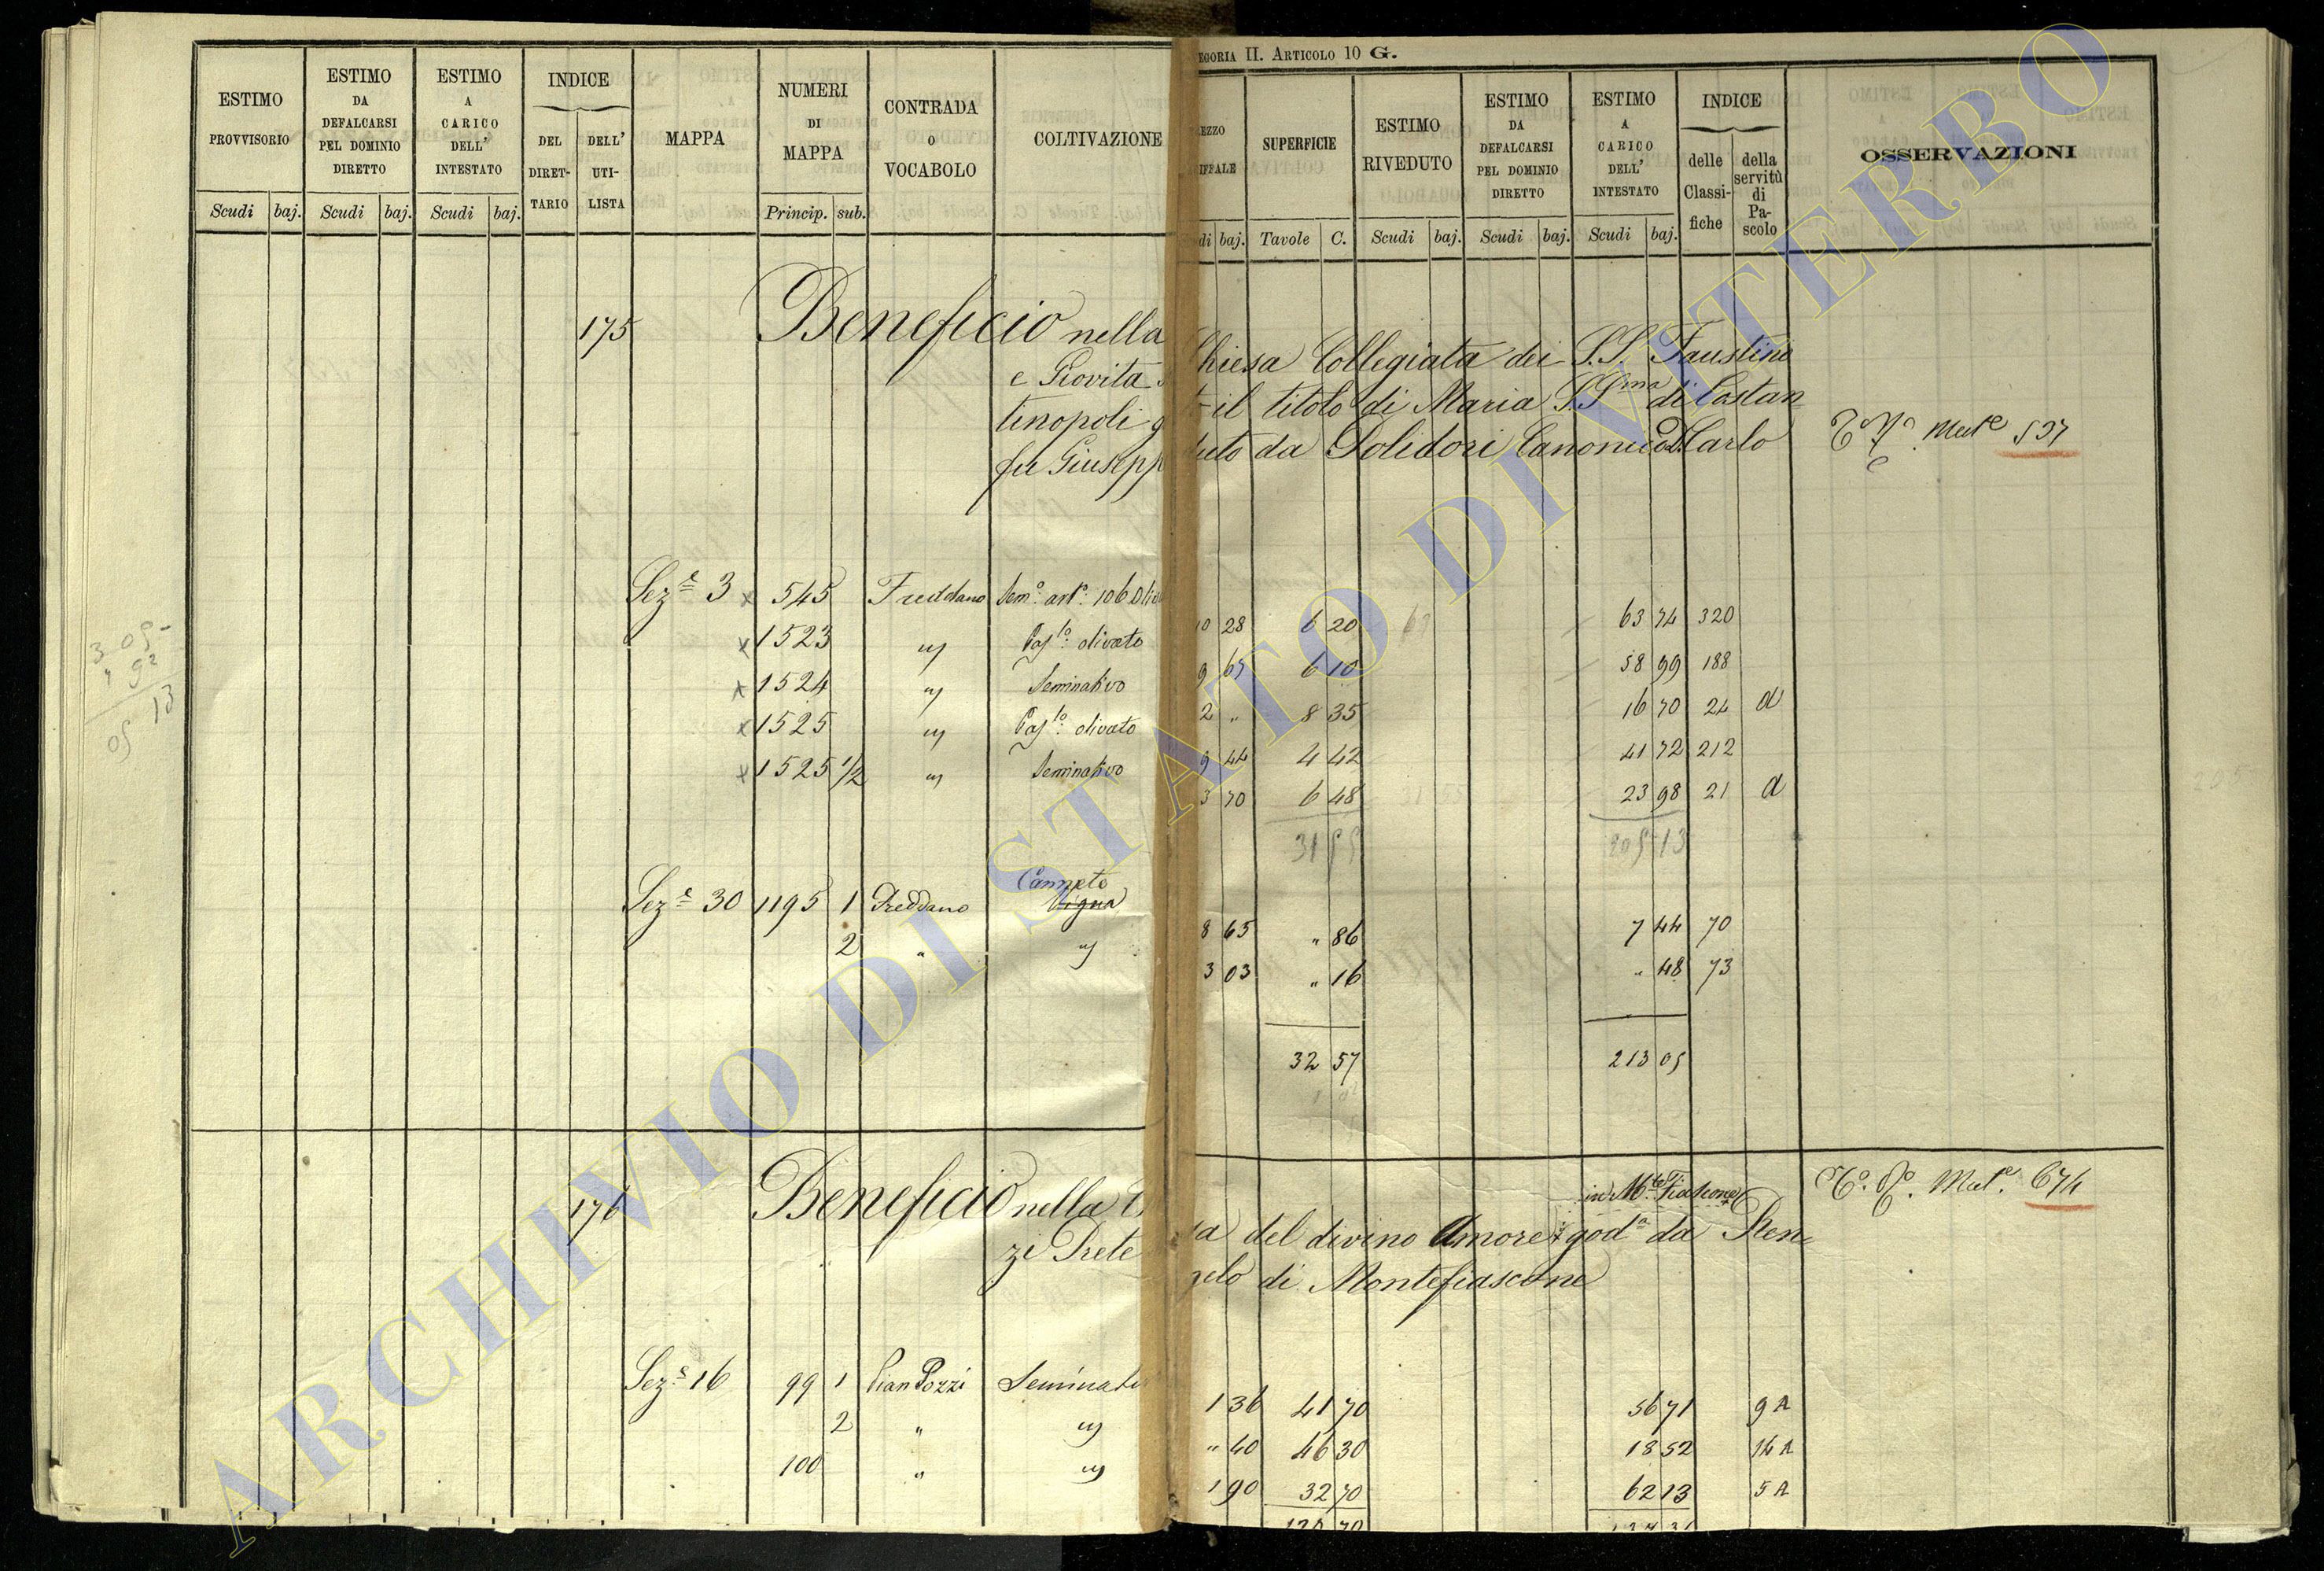 EGORIA II. ARTICOLO 10 G.
ESTIMO PROVVISORIO
ESTIMO DA DEFALCARSI PEL DOMINIO DIRETTO
ESTIMO A CARICO DELL' INTESTATO
INDICE
DEL DIRET-TARIO
DELL' UTI-LISTA
MAPPA
NUMERI DI MAPPA
CONTRADA O VOCABOLO
COLTIVAZIONE
EZZO
IFFALE
SUPERFICIE
ESTIMO RIVEDUTO
ESTIMO DA DEFALCARSI PEL DOMINIO DIRETTO
ESTIMO A CARICO DELL' INTESTATO
INDICE
delle Classi-fiche
della servitù di Pa-scolo
OSSERVAZIONI
Scudi baj. Scudi baj. Scudi baj. Princip. sub.
di baj. Tavole C. Scudi baj. Scudi baj. Scudi baj.
175 Beneficio nella Chiesa Collegiata dei S.S. Faustino
e Giovita il titolo di Maria S.S.ma di Costan
tinopoli da Polidori Canonico D. Carlo
fu Giusepp
Mat.e 537
Sez.e 3 x 545 Freddano Sem.o art.o 106 Oliv 10 28 6 20 63 74 320
x 1523 " Pas.to olivato 9 67 6 10 58 99 188
x 1524 " Seminativo 2 " 8 35 16 70 24 a
x 1525 " Pas.to olivato 9 44 4 42 41 72 212
x 1525 1/2 " Seminativo 3 70 6 48 23 98 21 a
31 55 205 13
Canneto
Sez.e 30 1195 1 Freddano Vigna 8 65 " 86 7 44 70
2 " " 3 03 " 16 " 48 73
32 57 213 05
in M.te Fiascone
176 Beneficio nella del divino Amore god.o da Ren
zi Prete gelo di Montefiascone
Mat.e 674
Sez.e 16 99 1 Pian Pozzi Seminativ 1 36 41 70 56 71 9 A
2 " " " 40 46 30 18 52 14 A
100 " " 1 90 32 70 62 13 5 A
ARCHIVIO DI STATO DI VITERBO